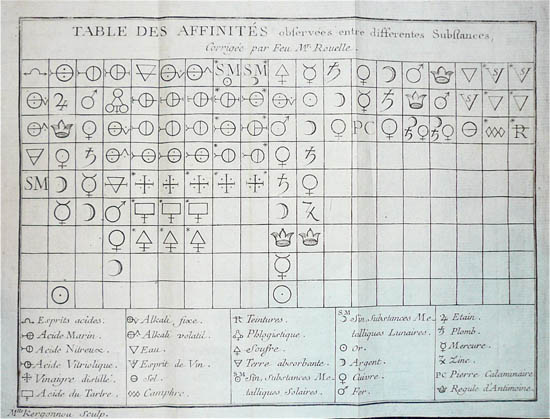 TABLE DES AFFINITÉS observées entre differentes Substances,
Corrigée par Feu Mr. Rouelle.
SM SM
PC
R
SM
Esprits acides.
Acide Marin.
Acide Nitreux.
Acide Vitriolique.
Vinaigre distillé.
Acide du Tartre.
Alkali fixe.
Alkali volatil.
Eau.
Esprit de Vin.
Sel.
Camphre.
R Teintures.
Phlogistique.
Soufre.
Terre absorbante.
SM Sin. Substances Me-
talliques Solaires.
SM Sin. Substances Me-
talliques Lunaires.
Or.
Argent.
Cuivre.
Fer.
Etain.
Plomb.
Mercure.
Zinc.
PC Pierre Calaminaire
Regule d'Antimoine.
Mlle Kergonnou Sculp.